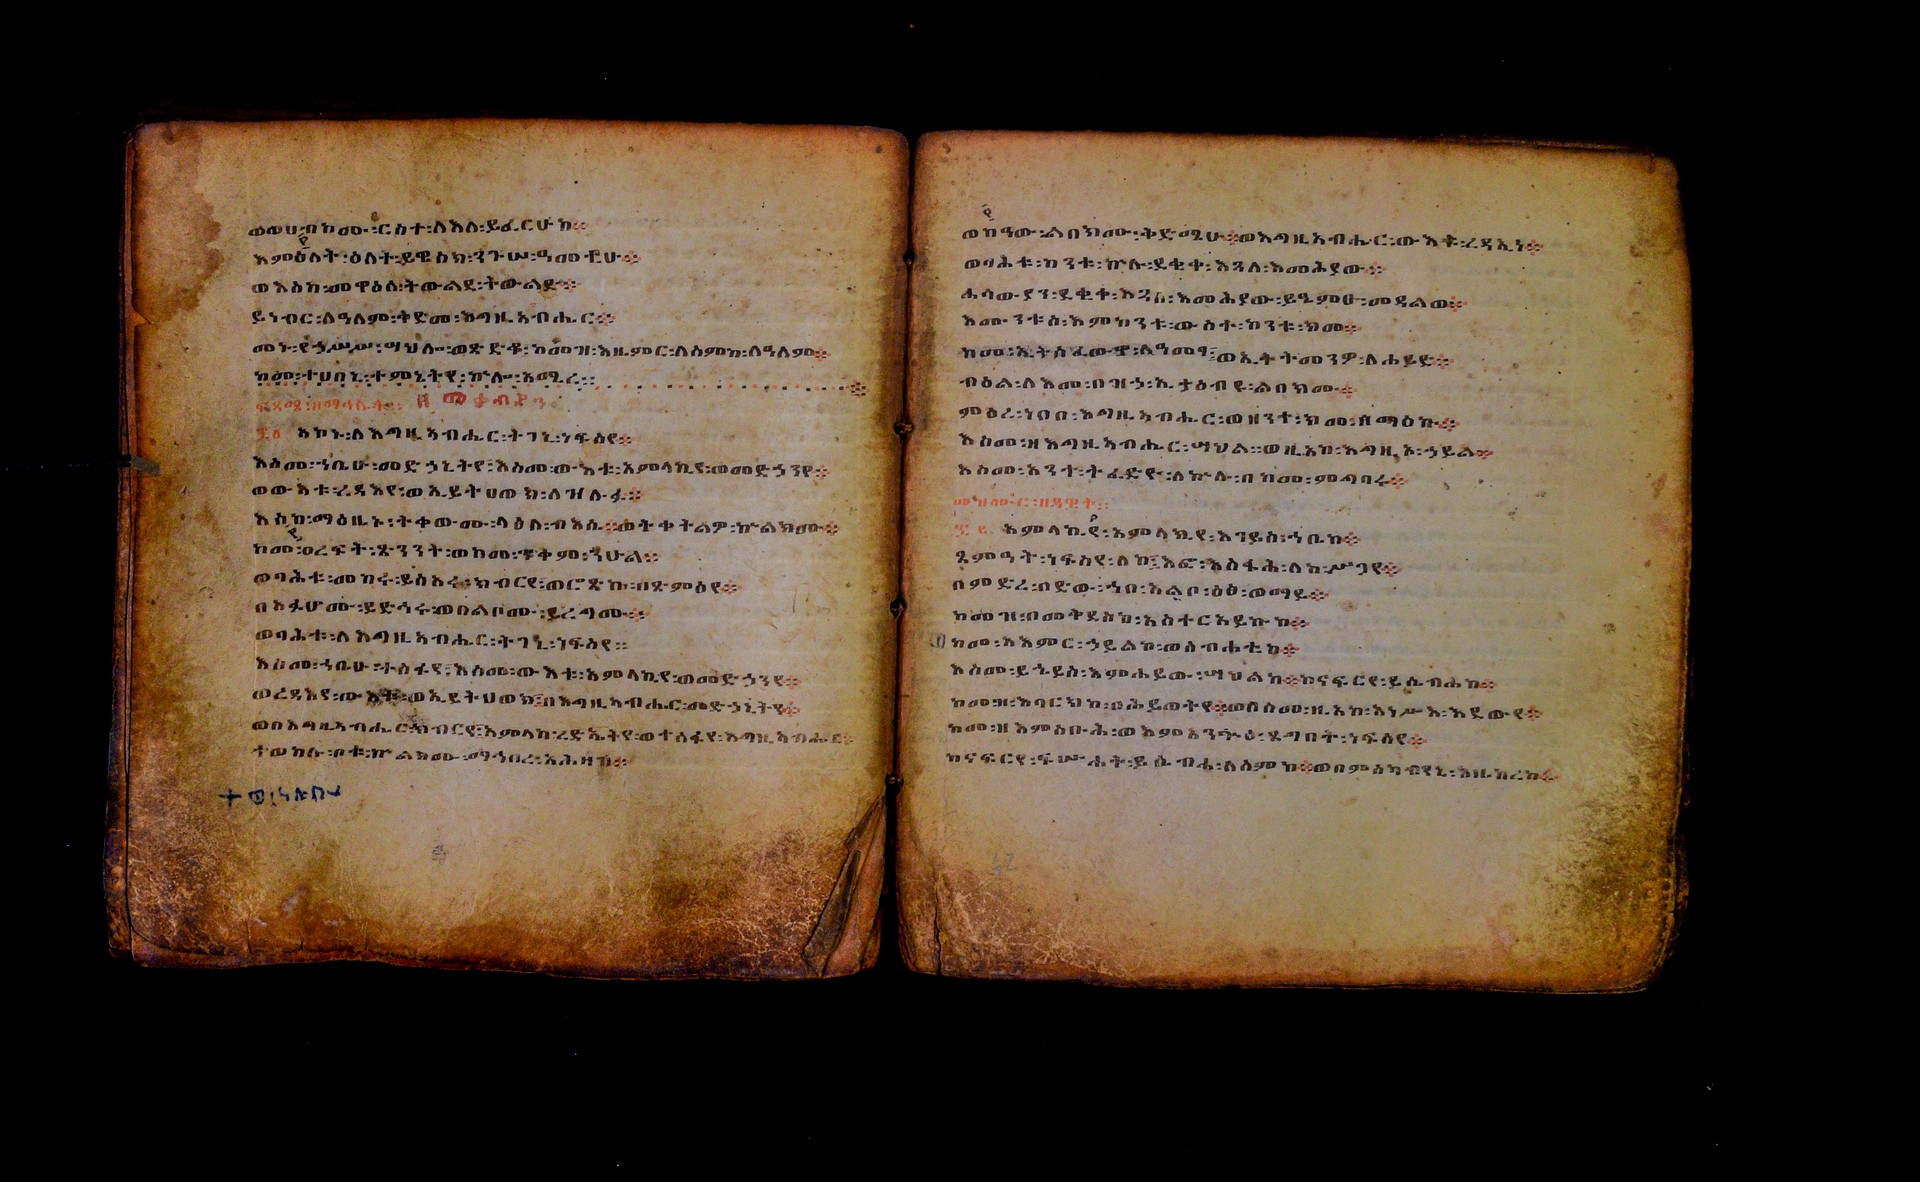 ወወሀብኮሙ፡ርስተ፡ለእለ፡ይፈርሁከ፨
እምዕለት፡ዕለት፡ይዌስክ፡ንጉሠ፡ዓመቲሁ፨
ወእስከ፡መዋዕለ፡ትውልደ፡ትውልድ፨
ይነብር፡ለዓለም፡ቅድመ፡እግዚአብሔር፨
መኑ፡የኃሥሥ፡ሣህሎ፡ወጽድቆ፡ከመዝ፡እዜምር፡ለስምከ፡ለዓለም፨
ከመ፡ተሀበኒ፡ተምኔትየ፡ኵሎ፡አሚረ፨
ፍጻሜ፡ዘማኅሌት፡ ዘ
፷፩ አኮኑ፡ለእግዚአብሔር፡ትገኒ፡ነፍስየ፨
እስመ፡ኀቤሁ፡መድኃኒትየ፡እስመ፡ውእቱ፡አምላኪየ፡ወመድኃንየ፨
ወውእቱ፡ረዳእየ፡ወኢይትሀወክ፡ለዝሉፉ፨
እስከ፡ማዕዜኑ፡ትቀውሙ፡ላዕለ፡ብእሲ፨ወትቀትልዎ፡ኵልክሙ፨
ከመ፡ዐረፍት፡ጽንንት፡ወከመ፡ቅጥቅም፡ንሁል፨
ወባሕቱ፡መከሩ፡ይስአሩ፡ክብርየ፡ወሮጽኩ፡በጽምዕየ፨
በአፉሆሙ፡ይድኅሩ፡ወበልቦሙ፡ይረግሙ፨
ወባሕቱ፡ለእግዚአብሔር፡ትገኒ፡ነፍስየ፨
እስመ፡ኀቤሁ፡ተስፋየ፡እስመ፡ውእቱ፡አምላኪየ፡ወመድኃንየ፨
ወረዳእየ፡ውእቱ፡ወኢይትሀወክ፡በእግዚአብሔር፡መድኃኒትየ፨
ወበእግዚአብሔር፡ክብርየ፡አምላከ፡ረድኤትየ፡ወተስፋየ፡እግዚአብሔር፨
ተወከሉ፡ቦቱ፡ኵልክሙ፡ማኅበረ፡አሕዛብ፨
ወከዓው፡ልበክሙ፡ቅድሜሁ፨ወእግዚአብሔር፡ውእቱ፡ረዳኢነ፨
ወባሕቱ፡ከንቱ፡ኵሉ፡ደቂቀ፡እጓለ፡እመሕያው፨
ሐሳውያን፡ደቂቀ፡እጓለ፡እመሕያው፡ይዔምፁ፡መዳልወ፨
እሙንቱስ፡እምከንቱ፡ውስተ፡ከንቱ፡ክመ፨
ከመ፡ኢትሰፈውዋ፡ለዓመፃ፡ወኢትትመንዎ፡ለሐይድ፨
ብዕል፡ለእመ፡በዝኀ፡ኢታዕብዩ፡ልበክሙ፨
ምዕረ፡ነበበ፡እግዚአብሔር፡ወዘንተ፡ክመ፡ዘማዕኩ፨
እስመ፡ዘእግዚአብሔር፡ሣህል፡ወዚአከ፡እግዚኦ፡ኃይል፨
እስመ፡አንተ፡ትፈድዮ፡ለኵሉ፡በከመ፡ምግባሩ፨
መዝሙር፡ዘዳዊት፨
፷፪ አምላኪየ፡አምላኪየ፡እገይስ፡ኀቤከ፨
ጸምዓት፡ነፍስየ፡ለከ፡እፎ፡እስፋሕ፡ለከ፡ሥጋየ፨
በምድረ፡በድው፡ኀበ፡አልቦ፡ዕፅ፡ወማይ፨
ከመዝ፡በመቅደስከ፡አስተርአይኩከ፨
ከመ፡አእምር፡ኃይልከ፡ወስብሐቲከ፨
እስመ፡ይኄይስ፡እምሐይው፡ሣህልከ፨ከናፍርየ፡ይሴብሐከ፨
ከመዝ፡እባርክከ፡በሕይወትየ፨ወበስመ፡ዚአከ፡አነሥእ፡እደውየ፨
ከመ፡ዘእምስቡሕ፡ወእምአንጕዕ፡ጸግበት፡ነፍስየ፨
ከናፍርየ፡ፍሥሐት፡ይሴብሓ፡ለስምከ፨ወበምስካብየኒ፡እዜከረከ፨